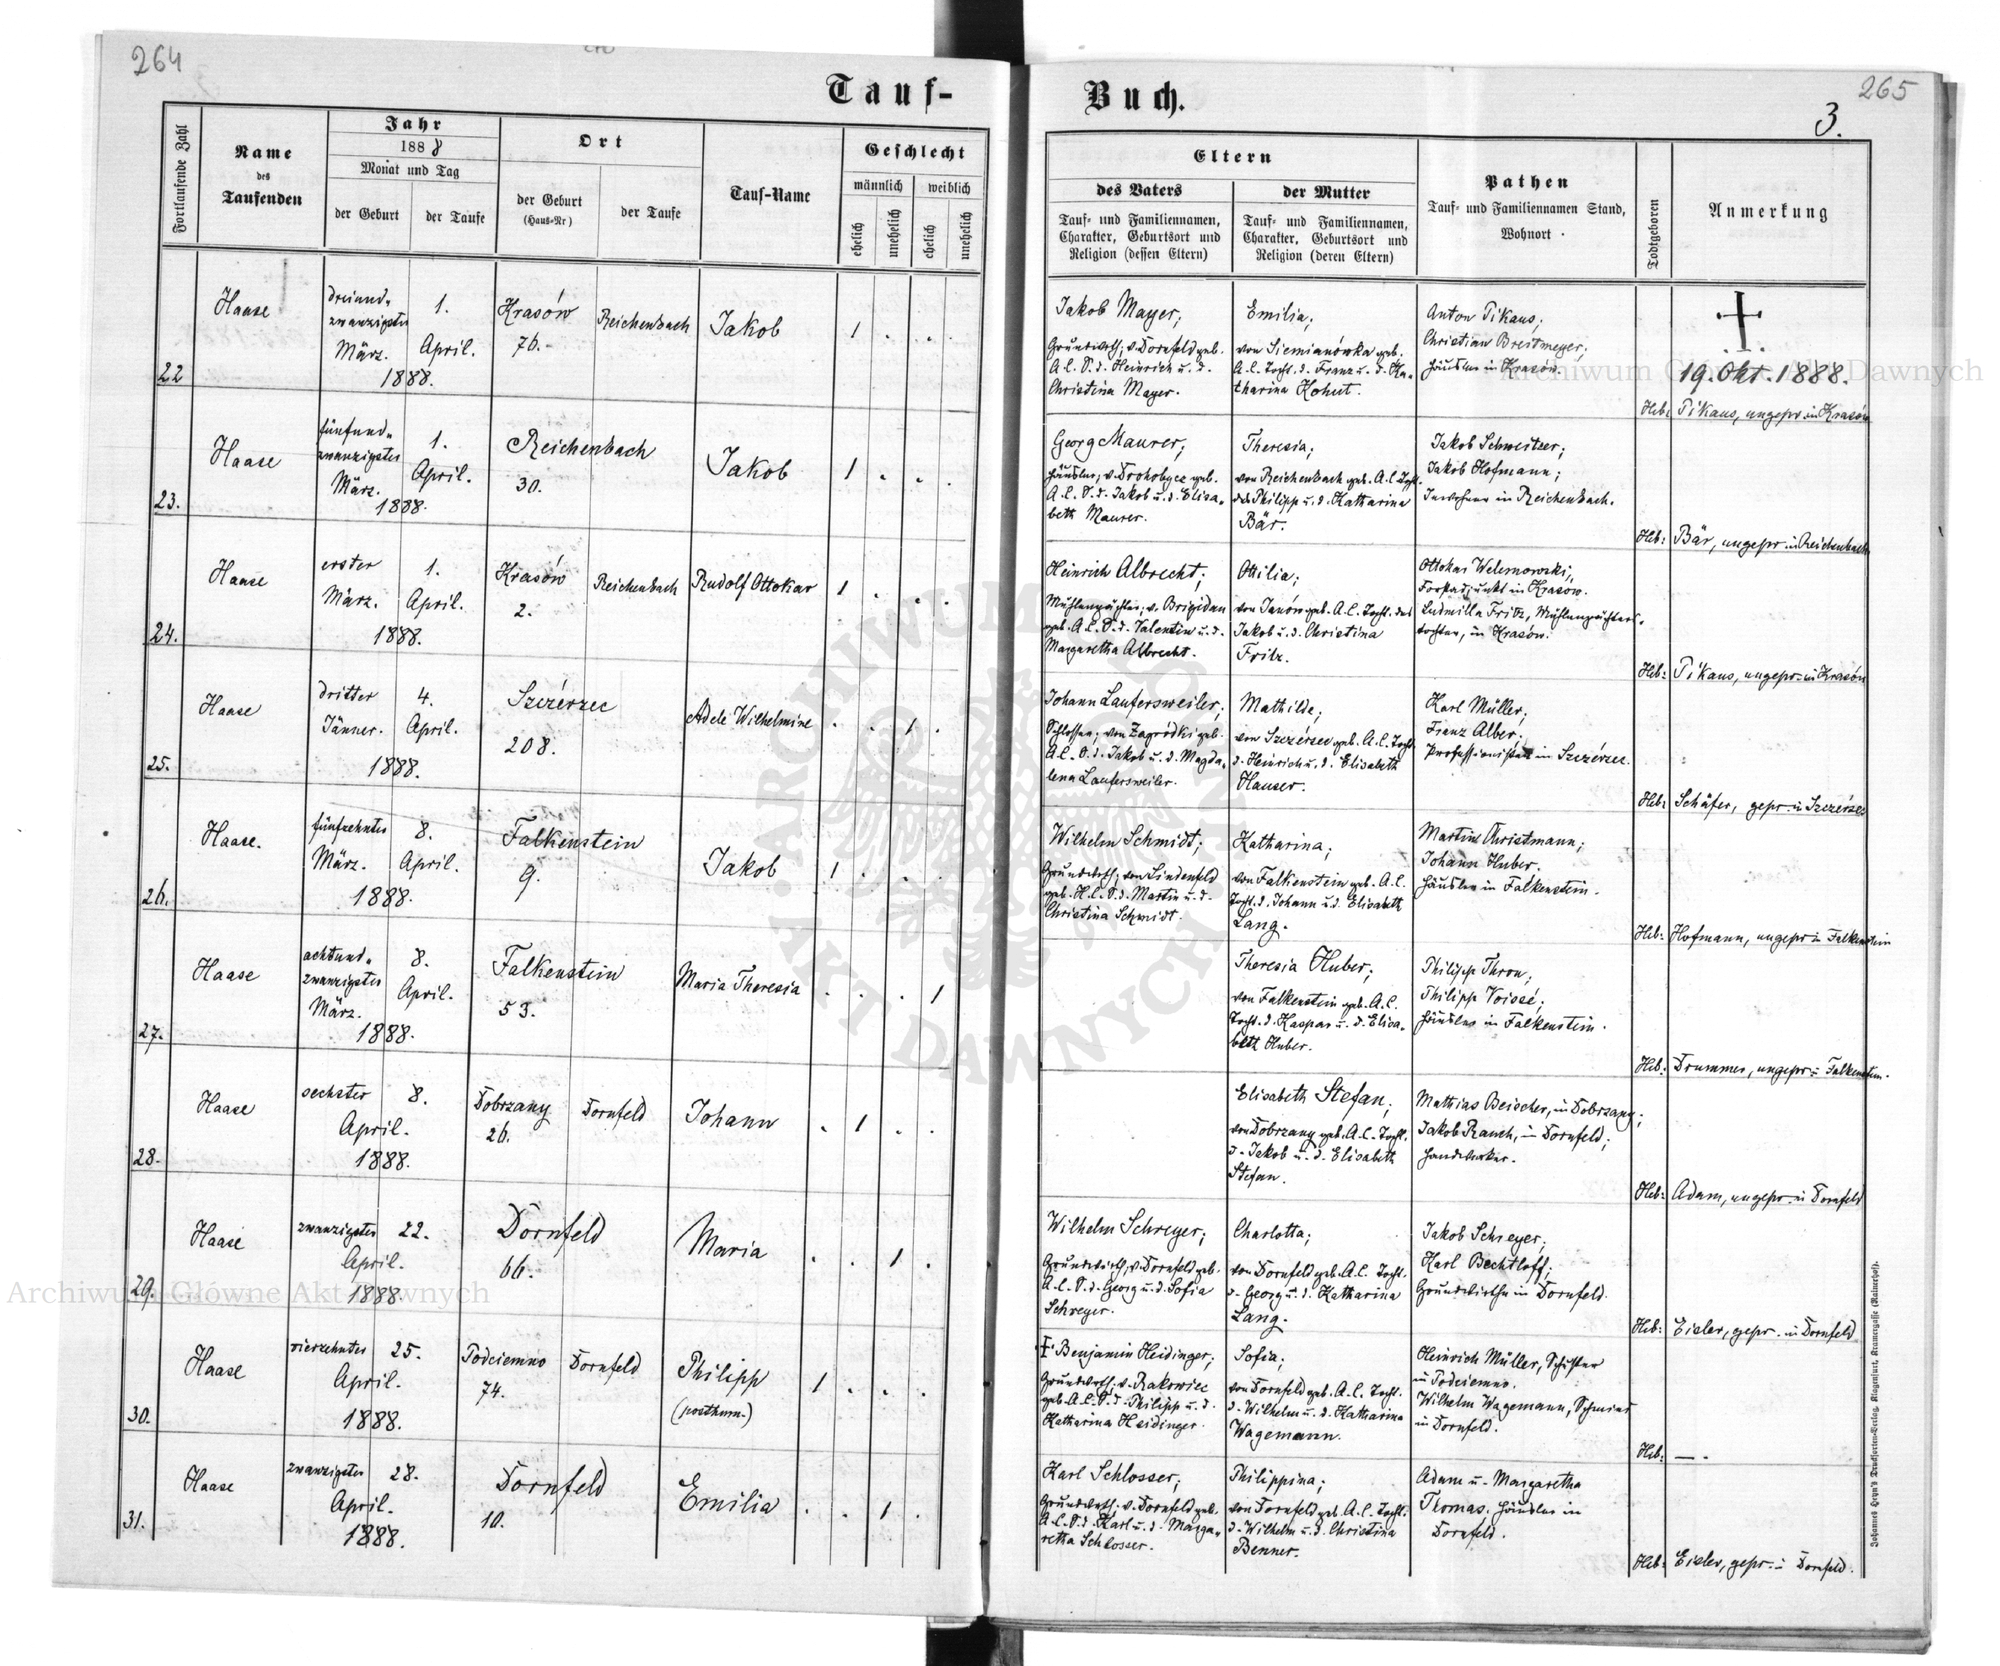 264
265
3.
Tauf-
Buch.
Fortlaufende Zahl
Name
des
Taufenden
Jahr
1888
Monat und Tag
der Geburt
der Taufe
Ort
der Geburt
(Haus-Nr)
der Taufe
Tauf-Name
Geschlecht
männlich
weiblich
ehelich
unehelich
ehelich
unehelich
Eltern
des Vaters
Tauf- und Familiennamen,
Charakter, Geburtsort und
Religion (dessen Eltern)
der Mutter
Tauf- und Familiennamen,
Charakter, Geburtsort und
Religion (deren Eltern)
Pathen
Tauf- und Familiennamen Stand,
Wohnort
Todtgeboren
Anmerkung
22
Haase
dreiund-
zwanzigster
März.
1.
April.
1888.
Krasów
76.
Reichenbach
Jakob
1 . . .
Jakob Mayer;
Grundwrth; v. Dornfeld geb.
A.C. S.d. Heinrich u. d.
Christina Mayer.
Emilia;
von Siemianówka geb.
A.C. Tocht. d. Franz u. d. Ka-
tharina Kohut.
Anton Pikaus;
Christian Breitmeyer;
Häusler in Krasów.
19. Okt. 1888.
Heb: Pikaus, ungepr. in Krasów
23.
Haase
fünfund-
zwanzigster
März.
1.
April.
1888.
Reichenbach
30.
Jakob
1 . . .
Georg Maurer;
Häusler; v. Drohobycz geb.
A.C. S.d. Jakob u. d. Elisa-
beth Maurer.
Theresia;
von Reichenbach geb. A.C. Tocht.
des Philipp u. d. Katharina
Bär.
Jakob Schweitzer;
Jakob Hofmann;
Inwohner in Reichenbach.
Heb: Bär, ungepr. in Reichenbach
24.
Haase
erster
März.
1.
April.
1888.
Krasów
2.
Reichenbach
Rudolf Ottokar
1 . . .
Heinrich Albrecht;
Mühlenpächter; v. Brigidau
geb. A.C. S.d. Valentin u. d.
Margaretha Albrecht.
Ottilia;
von Janów geb. A.C. Tocht. des
Jakob u. d. Christina
Fritz.
Ottokar Welemowski;
Forstadjunkt in Krasów.
Ludmilla Fritz, Mühlenpächters-
tochter, in Krasów.
Heb: Pikaus, ungepr. in Krasów
25.
Haase
dritter
Jänner.
4.
April.
1888.
Szczérzec
208.
Adele Wilhelmine
. . 1 .
Johann Laufersweiler;
Schlosser; von Zagródki geb.
A.C. S.d. Jakob u. d. Magda-
lena Laufersweiler.
Mathilde;
von Szczérzec geb. A.C. Tocht.
d. Heinrich u. d. Elisabeth
Hauser.
Karl Müller;
Franz Alber.
Professionisten in Szczérzec.
Heb: Schäfer, gepr. in Szczérzec
26.
Haase.
fünfzehnter
März.
8.
April.
1888.
Falkenstein
9.
Jakob
1 . . .
Wilhelm Schmidt;
Grundwrth; von Lindenfeld
geb. H.C. S.d. Martin u. d.
Christina Schmidt.
Katharina;
von Falkenstein geb. A.C.
Tocht. d. Johann u. d. Elisabeth
Lang.
Martin Christmann;
Johann Huber.
Häusler in Falkenstein.
Heb: Hofmann, ungepr. in Falkenstein
27.
Haase
achtund-
zwanzigster
März.
8.
April.
1888.
Falkenstein
53.
Maria Theresia
. . . 1
Theresia Huber;
von Falkenstein geb. A.C.
Tocht. d. Kaspar u. d. Elisa-
beth Huber.
Philipp Thron;
Philipp Voissé;
Häusler in Falkenstein.
Heb: Drummer, ungepr. in Falkenstein.
28.
Haase
sechster
April.
8.
1888.
Dobrzany
26.
Dornfeld
Johann
. 1 . .
Elisabeth Stefan;
von Dobrzany geb. A.C. Tocht.
d. Jakob u. d. Elisabeth
Stefan.
Mathias Beischer, in Dobrzany;
Jakob Rauch, in Dornfeld;
Handwerker.
Heb: Adam, ungepr. in Dornfeld
29.
Haase
zwanzigster
April.
22.
1888.
Dornfeld
66.
Maria
. . 1 .
Wilhelm Schreyer;
Grundwirth; v. Dornfeld geb.
A.C. S.d. Georg u. d. Sofia
Schreyer.
Charlotta;
von Dornfeld geb. A.C. Tocht.
d. Georg u. d. Katharina
Lang.
Jakob Schreyer;
Karl Bechtloff;
Grundwirthe in Dornfeld.
Heb: Eisler, gepr. in Dornfeld
30.
Haase
vierzehnter
April.
25.
1888.
Podciemno
74.
Dornfeld
Philipp
(posthum.)
1 . . .
† Benjamin Heidinger;
Grundwrth; v. Rakowiec
geb. A.C. S.d. Philipp u. d.
Katharina Heidinger.
Sofia;
von Dornfeld geb. A.C. Tocht.
d. Wilhelm u. d. Katharina
Wagemann.
Heinrich Müller, Schuster
in Podciemno.
Wilhelm Wagemann, Schmied
in Dornfeld.
Heb: —.
31.
Haase
zwanzigster
April.
28.
1888.
Dornfeld
10.
Emilia
. . 1 .
Karl Schlosser;
Grundwrth; v. Dornfeld geb.
A.C. S.d. Karl u. d. Marga-
retha Schlosser.
Philippina;
von Dornfeld geb. A.C. Tocht.
d. Wilhelm u. d. Christina
Benner.
Adam u. Margaretha
Thomas; Häusler in
Dornfeld.
Heb: Eisler, gepr. in Dornfeld.
Johannes Heyn's Drucksorten-Verlag, Klagenfurt, Kramergasse (Rainerhof).
Archiwum Główne Akt Dawnych
Archiwum Główne Akt Dawnych
ARCHIWUM GŁÓWNE AKT DAWNYCH